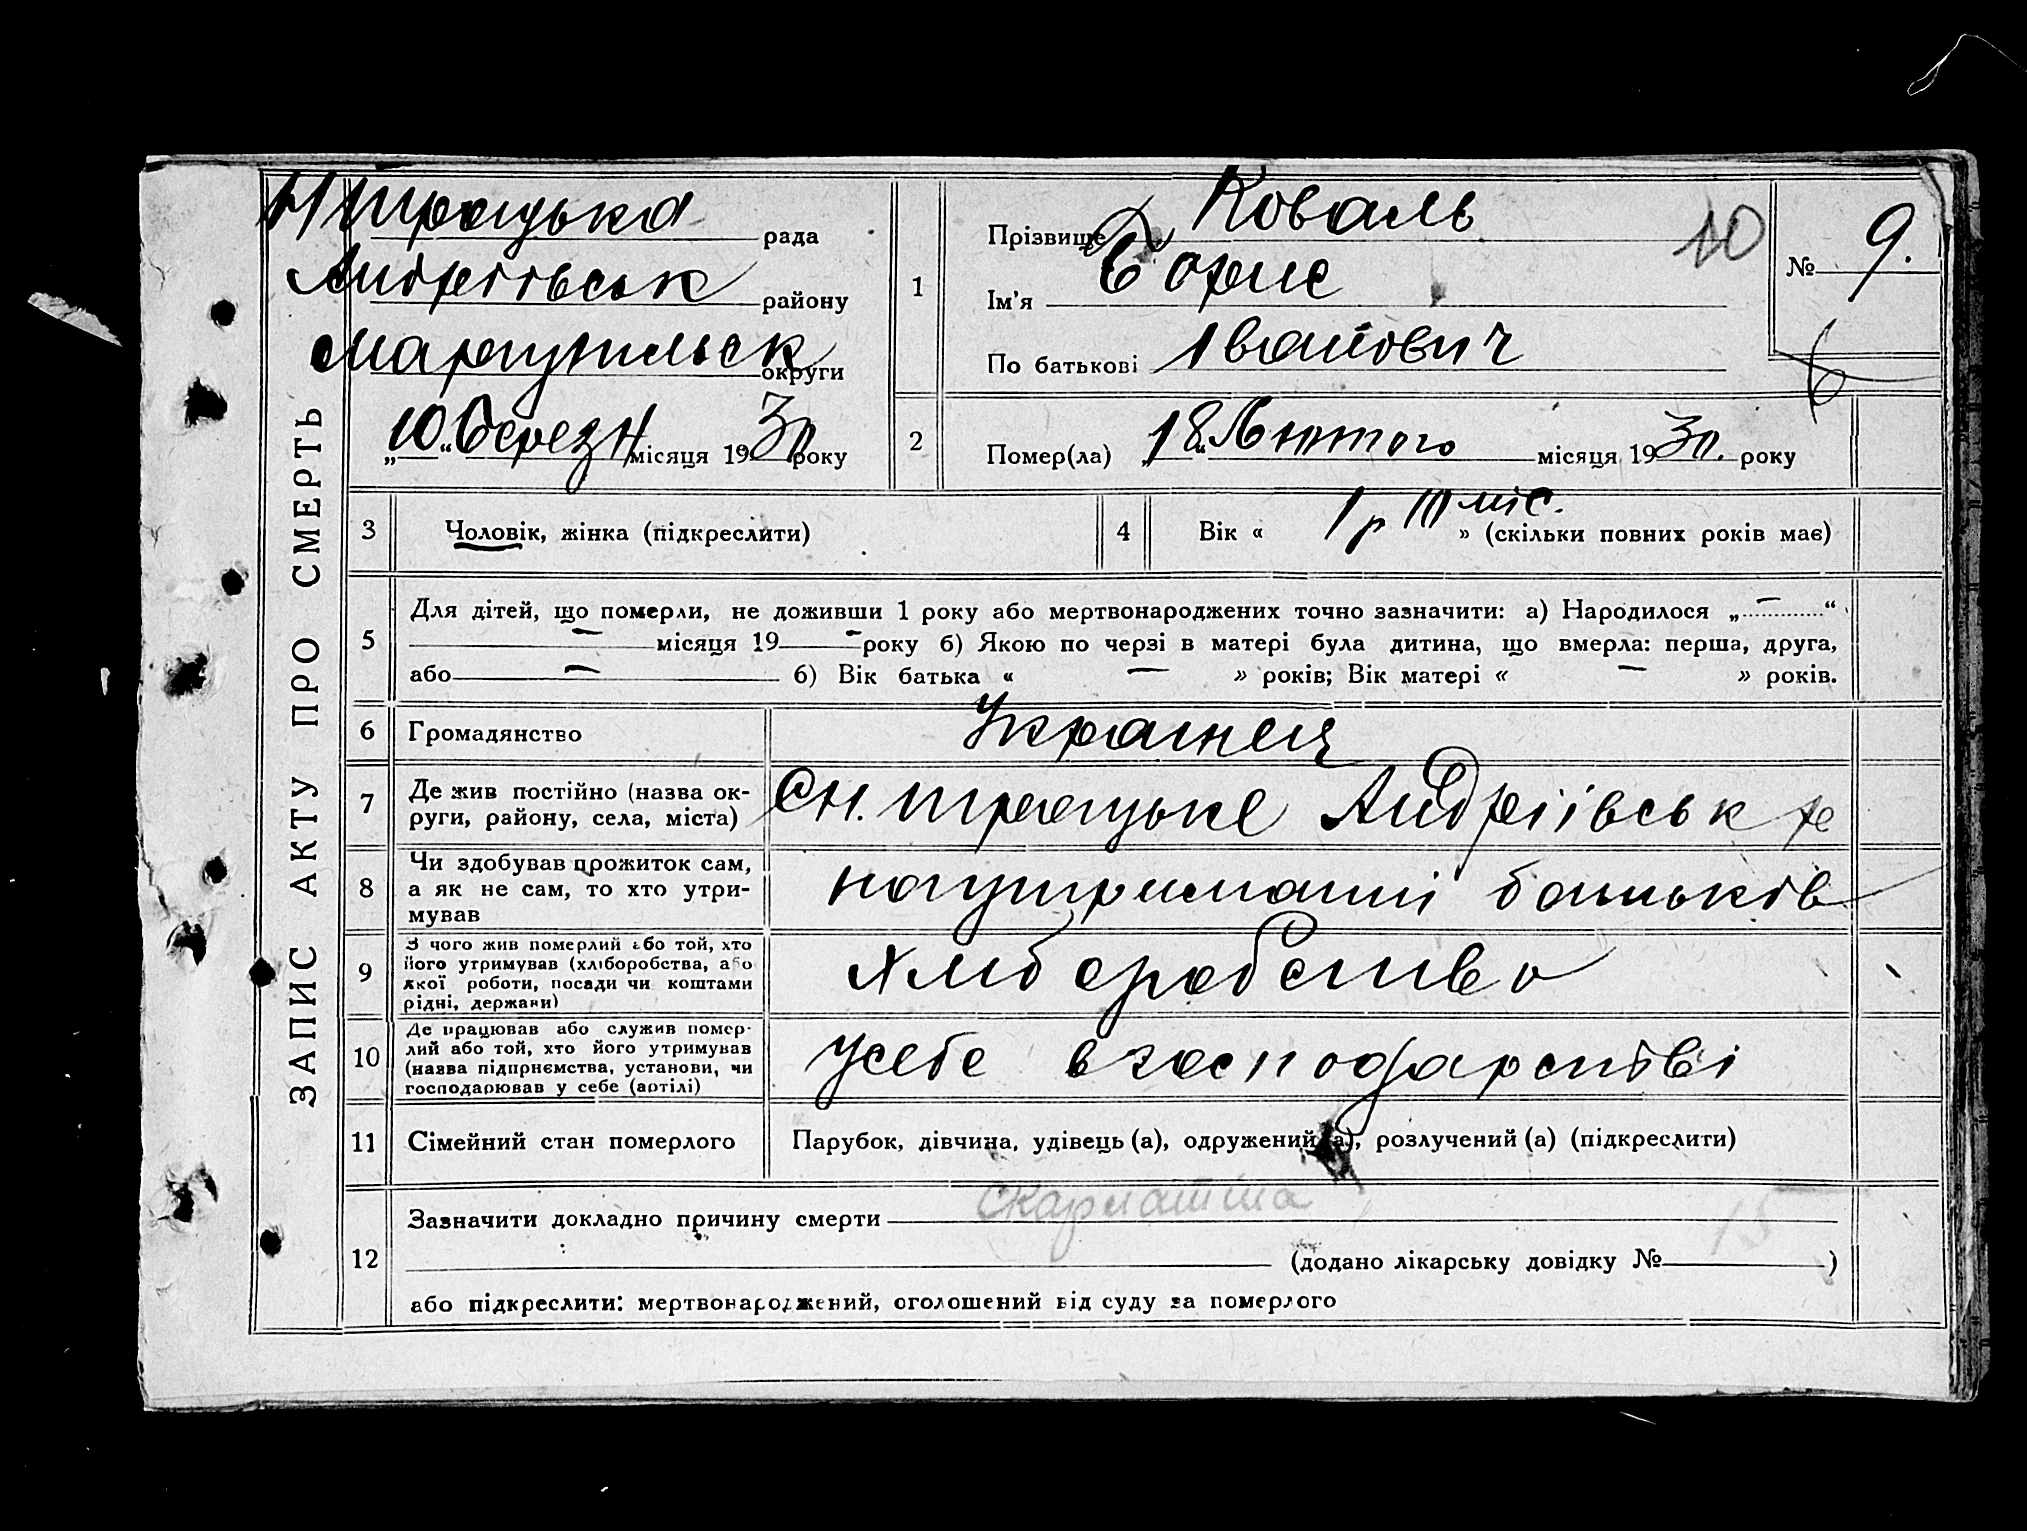 ЗАПИС АКТУ ПРО СМЕРТЬ
Н троецька рада
Андріївськ району
Маріупільск округи
„10“ березн місяця 1930 року
1
Прізвище Коваль
Ім'я Борис
По батькові Іванович
10
№ 9.
2
Помер(ла) „18“ Лютого місяця 1930. року
3
Чоловік, жінка (підкреслити)
4
Вік « 1 р III міс. » (скільки повних років має)
5
Для дітей, що померли, не доживши 1 року або мертвонароджених точно зазначити: а) Народилося „ — “
— місяця 19 — року б) Якою по черзі в матері була дитина, що вмерла: перша, друга,
або — б) Вік батька « — » років; Вік матері « — » років.
6
Громадянство
Украінец
7
Де жив постійно (назва ок-
руги, району, села, міста)
С Н. троецьке Андріївськ р
8
Чи здобував прожиток сам,
а як не сам, то хто утри-
мував
на утриманні батьків
9
З чого жив померлий або той, хто
його утримував (хліборобства, або
якої роботи, посади чи коштами
рідні, держави)
хліборобство
10
Де працював або служив помер-
лий або той, хто його утримував
(назва підприємства, установи, чи
господарював у себе (артілі)
у себе в господарстві
11
Сімейний стан померлого
Парубок, дівчина, удівець (а), одружений (а), розлучений (а) (підкреслити)
12
Зазначити докладно причину смерти скарлатина
15
(додано лікарську довідку № )
або підкреслити: мертвонароджений, оголошений від суду за померлого